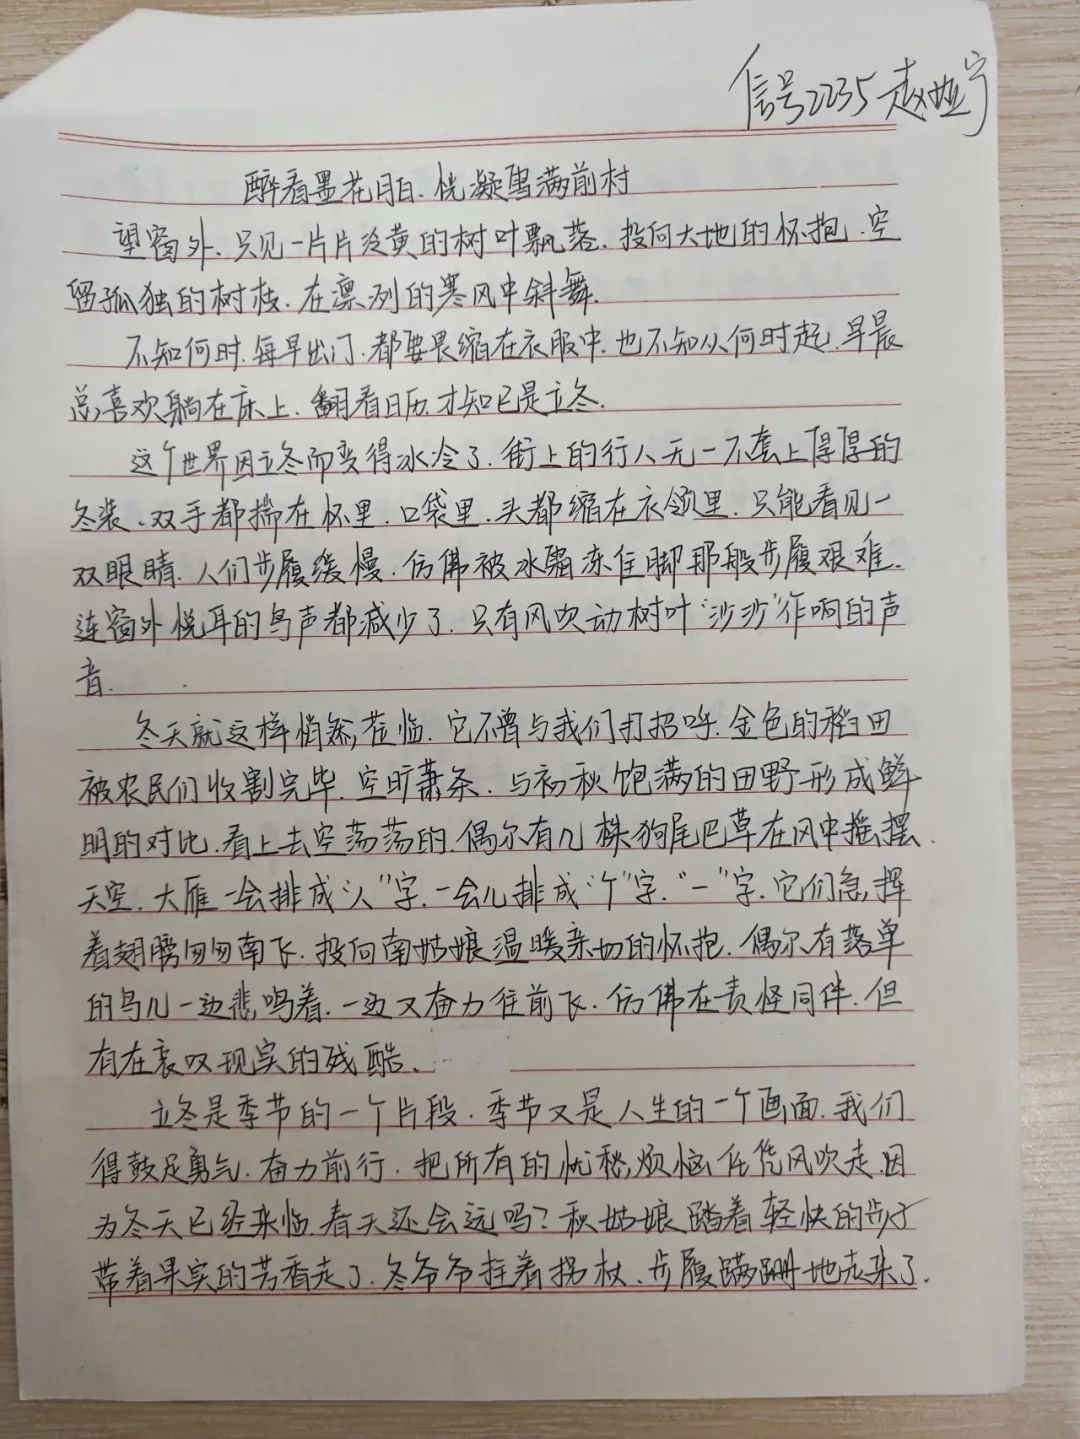 信号2235 赵娅宁
醉看墨花月白.恍凝雪满前村
望窗外.只见一片片泛黄的树叶飘落.投向大地的怀抱.空
留孤独的树枝.在凛冽的寒风中斜舞.
不知何时.每早出门.都要畏缩在衣服中.也不知从何时起.早晨
总喜欢躺在床上.翻看日历.才知已是立冬.
这个世界因立冬而变得冰冷了.街上的行人无一不套上厚厚的
冬装.双手都揣在怀里.口袋里.头都缩在衣领里.只能看见一
双眼睛.人们步履缓慢.仿佛被冰霜冻住脚那般步履艰难.
连窗外悦耳的鸟声都减少了.只有风吹动树叶“沙沙”作响的声
音.
冬天就这样悄然莅临.它不曾与我们打招呼.金色的稻田
被农民们收割完毕.空旷萧条.与初秋饱满的田野形成鲜
明的对比.看上去空荡荡的.偶尔有几株狗尾巴草在风中摇摆.
天空.大雁一会排成“人”字.一会儿排成“个”字.“一”字.它们急挥
着翅膀匆匆南飞.投向南姑娘温暖亲切的怀抱.偶尔有落单
的鸟儿一边悲鸣着.一边又奋力往前飞.仿佛在责怪同伴.但
有在哀叹现实的残酷.
立冬是季节的一个片段.季节又是人生的一个画面.我们
得鼓足勇气.奋力前行.把所有的忧愁烦恼任凭风吹走.因
为冬天已经来临.春天还会远吗?秋姑娘踏着轻快的步子
带着果实的芳香走了.冬爷爷拄着拐杖.步履蹒跚地走来了.